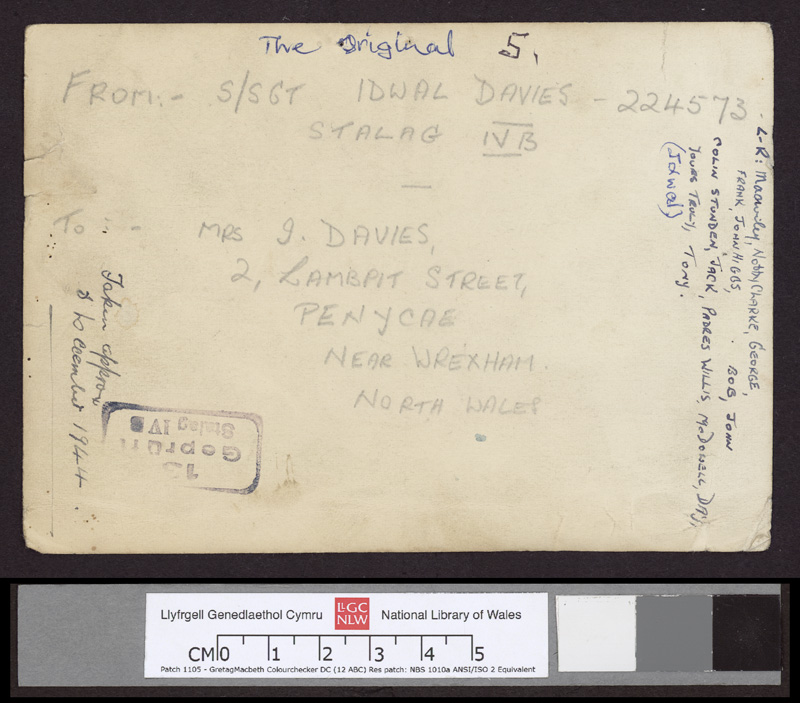 The Original 5.
FROM:- S/SGT IDWAL DAVIES - 224573
STALAG IVB
To :- MRS I. DAVIES,
2, LAMBPIT STREET,
PENYCAE
NEAR WREXHAM.
NORTH WALES
L-R: Nobby CLARKE, GEORGE,
FRANK, JOHN HIGGS, BOB, JOHN
COLIN STUNDEN, JACK, PADRES WILLIS, McDOWELL,
YOURS TRULY, TONY.
(Idwal)
Taken approx
December 1944
13
Geprüft
Stalag IV B
Llyfrgell Genedlaethol Cymru
LlGC
NLW
National Library of Wales
CM 0 1 2 3 4 5
Patch 1105 - GretagMacbeth Colourchecker DC (12 ABC) Res patch: NBS 1010a ANSI/ISO 2 Equivalent